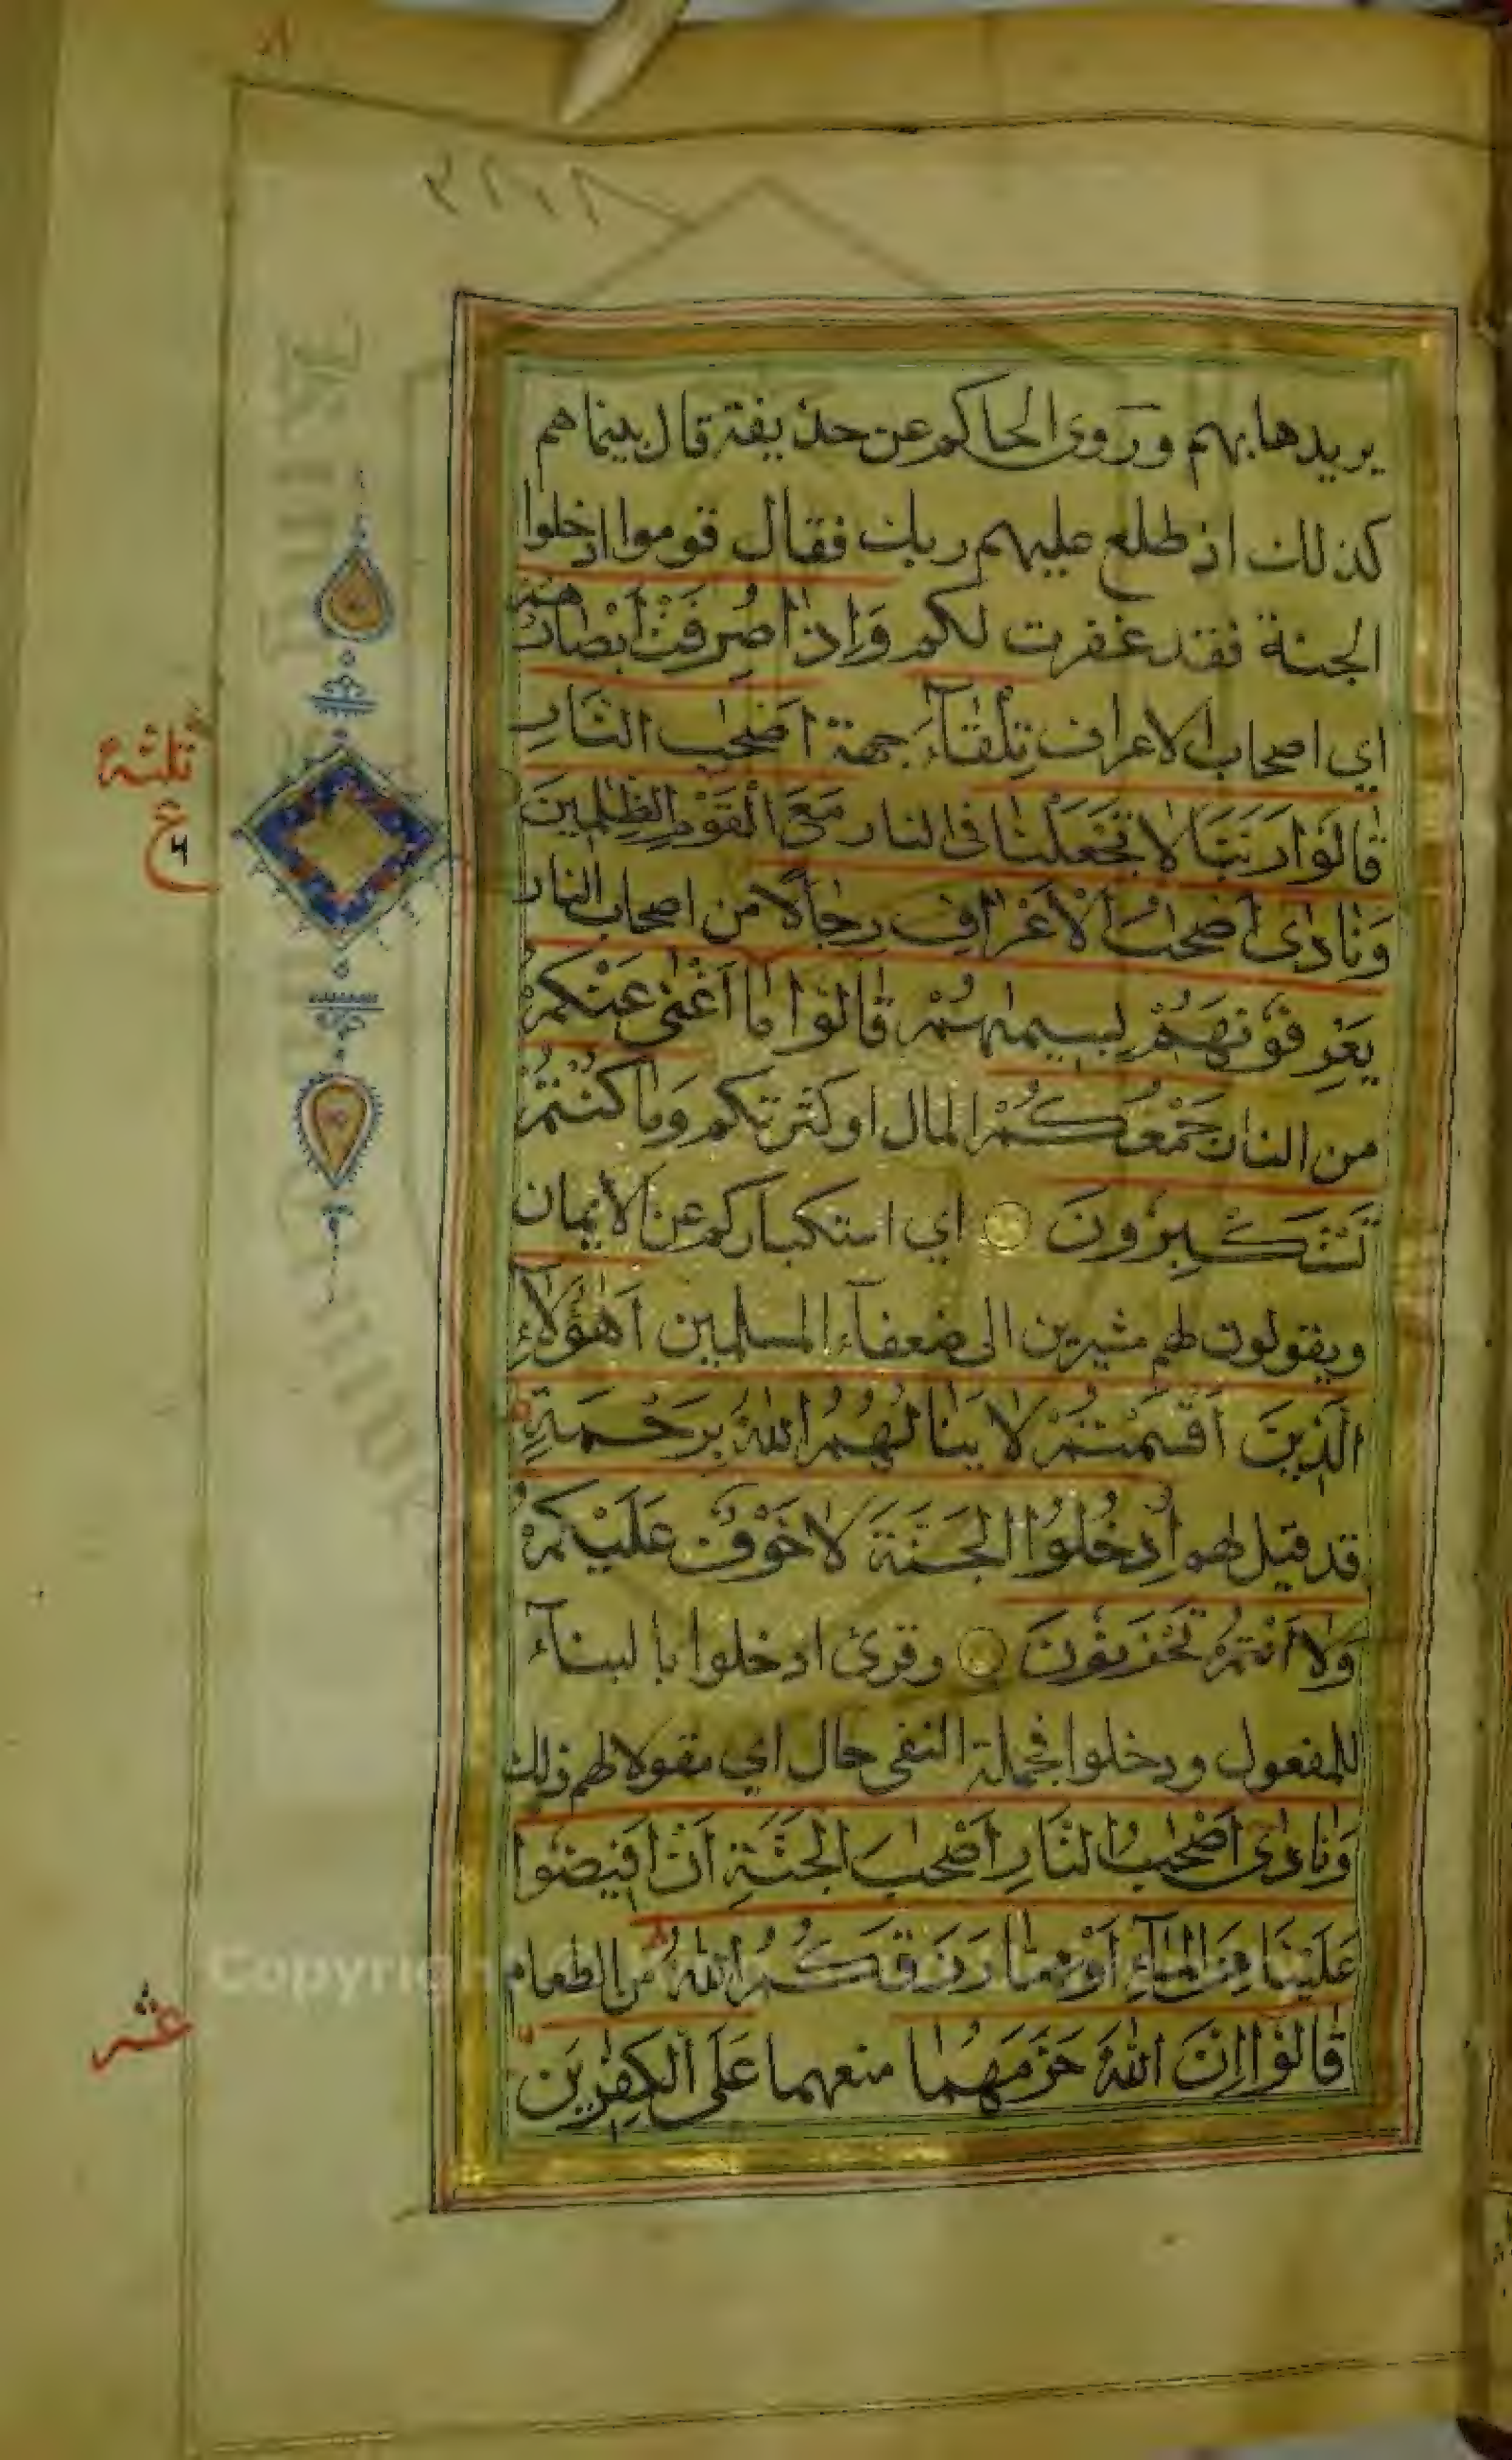 يريدها بهم وروى الحاكم عن حذيفة قال بينما هم
كذلك اذ طلع عليهم ربك فقال قوموا ادخلوا
الجنة فقد غفرت لكم وَاِذٰا صُرِفَتْ اَبْصٰارُهُمْ
اي اصحاب الاعراف تِلْقٰٓاءَ جهة اَصْحٰبِ النّٰارِ
قٰالُوْا رَبَّنَا لَا تَجْعَلْنٰا فى النار مَعَ الْقَوْمِ الظّٰلِمِينَ
وَنٰادٰى اَصْحٰبُ الْاَعْرٰافِ رِجٰالًا من اصحاب النار
يَعْرِفُوْنَهُمْ بِسِيمٰهُمْ قٰالُوْا مٰا اَغْنٰى عَنْكُمْ
من النار جَمْعُكُمْ المال او كثرتكم وَمٰا كُنْتُمْ
تَسْتَكْبِرُونَ اي استكباركم عن الايمان
ويقولون لهم مشيرين الى ضعفآء المسلمين اَهٰٓؤُلَاءِ
الَّذِينَ اَقْسَمْتُمْ لَا يَنٰالُهُمُ اللّٰهُ بِرَحْمَةٍ
قد قيل لهم اُدْخُلُوا الْجَنَّةَ لَا خَوْفٌ عَلَيْكُمْ
وَلَا اَنْتُمْ تَحْزَنُونَ وقرئ ادخلوا بالبنآء
للمفعول ودخلوا فجملة النفى حال اي مقولا لهم ذلك
وَنٰادٰى اَصْحٰبُ النَّارِ اَصْحٰبَ الْجَنَّةِ اَنْ اَفِيضُوا
عَلَيْنَا مِنَ الْمٰآءِ اَوْ مِمّٰا رَزَقَكُمُ اللّٰهُ من الطعام
قٰالُوْا اِنَّ اللّٰهَ حَرَّمَهُمٰا منعهما عَلَى الْكٰفِرِينَ
ثلثة
ع
٦
عشر
Copyrig